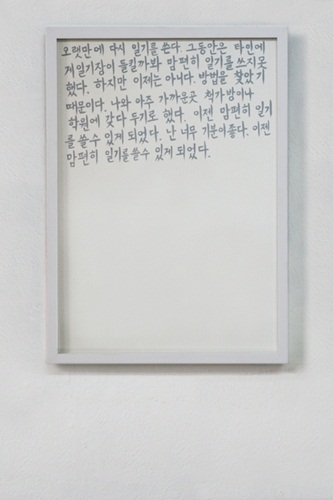 오랫만에 다시 일기를 쓴다. 그동안은 타인에
게 일기장이 들킬까봐 맘편히 일기를 쓰지못
했다. 하지만 이제는 아니다. 방법을 찾았기
때문이다. 나와 아주 가까운곳 책가방이나
학원에 갖다 두기로 했다. 이젠 맘편히 일기
를 쓸수 있게 되었다. 난 너무 기분이 좋다. 이젠
맘편히 일기를 쓸수 있게 되었다.